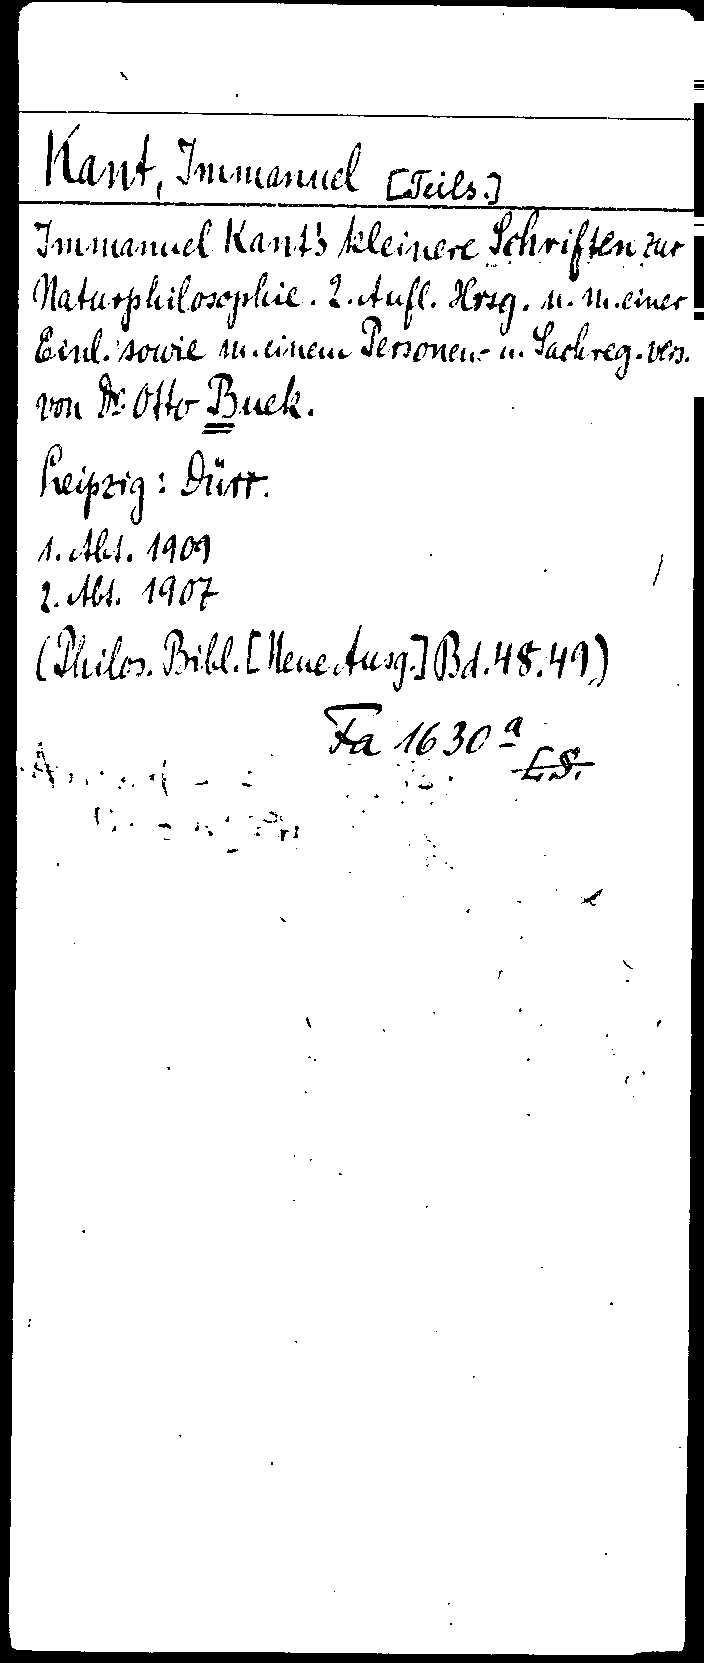 Kant, Immanuel [Teils.]
Immanuel Kant's kleinere Schriften zur
Naturphilosophie. 2. Aufl. Hrsg. u. m. einer
Einl. sowie m. einem Personen- u. Sachreg. vers.
von Dr. Otto Buek.
Leipzig: Dürr.
1. Abt. 1909
2. Abt. 1907
(Philos. Bibl. [Neue Ausg.] Bd. 48. 49)
Fa 1630 a
L.S.